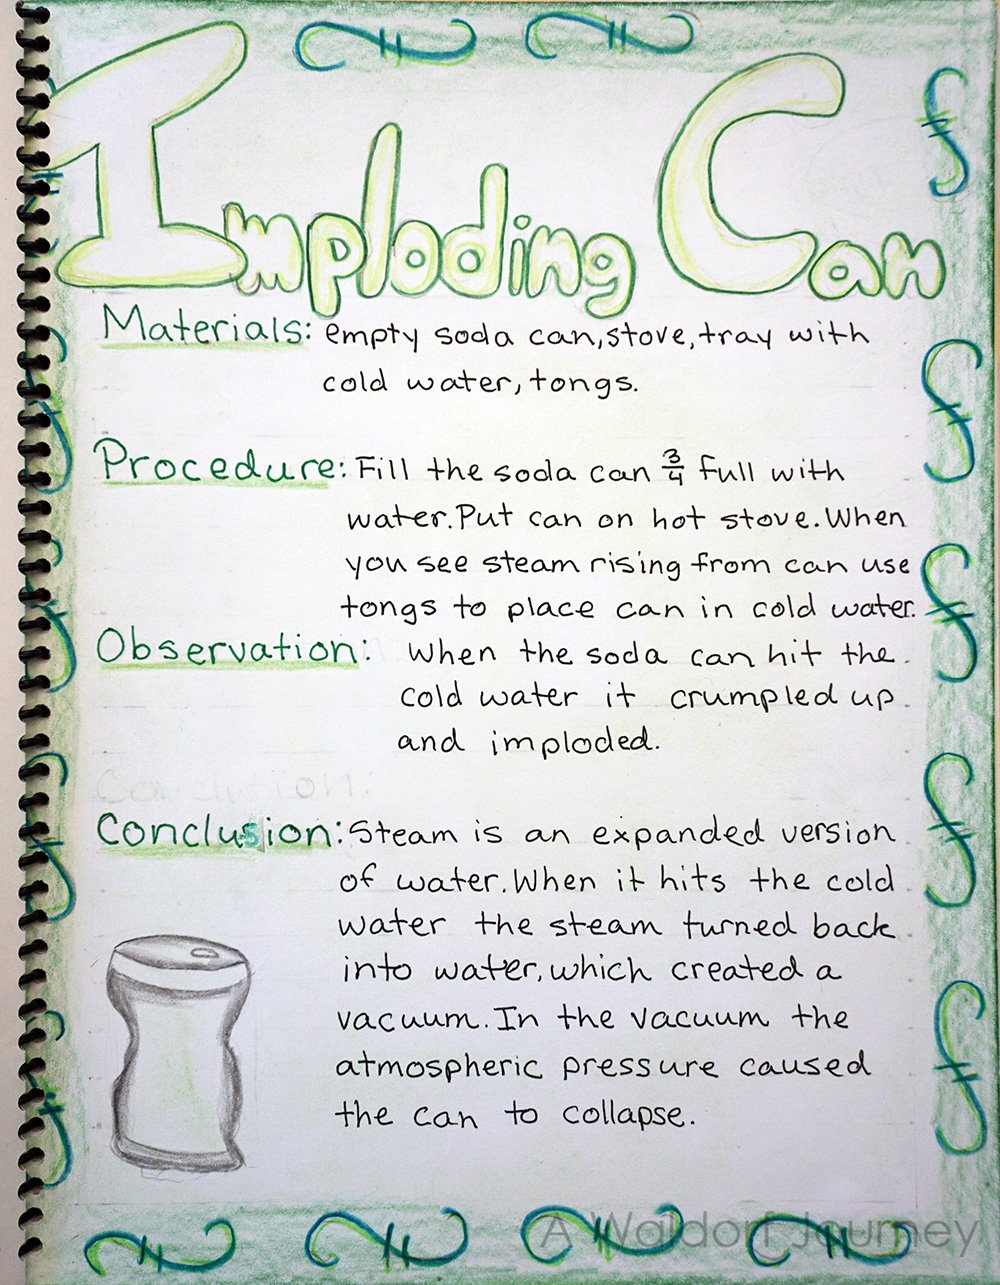 Imploding Can
Materials: empty soda can, stove, tray with
cold water, tongs.
Procedure: Fill the soda can 3/4 full with
water. Put can on hot stove. When
you see steam rising from can use
tongs to place can in cold water.
Observation: When the soda can hit the
cold water it crumpled up
and imploded.
Conclusion: Steam is an expanded version
of water. When it hits the cold
water the steam turned back
into water, which created a
vacuum. In the vacuum the
atmospheric pressure caused
the can to collapse.
A Waldorf Journey